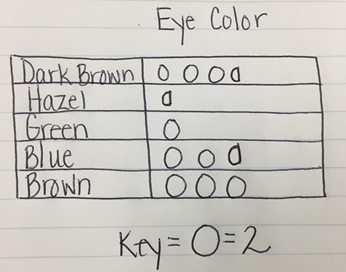 Eye Color
Dark Brown O O O O
Hazel O
Green O
Blue O O O
Brown O O O
Key = O = 2